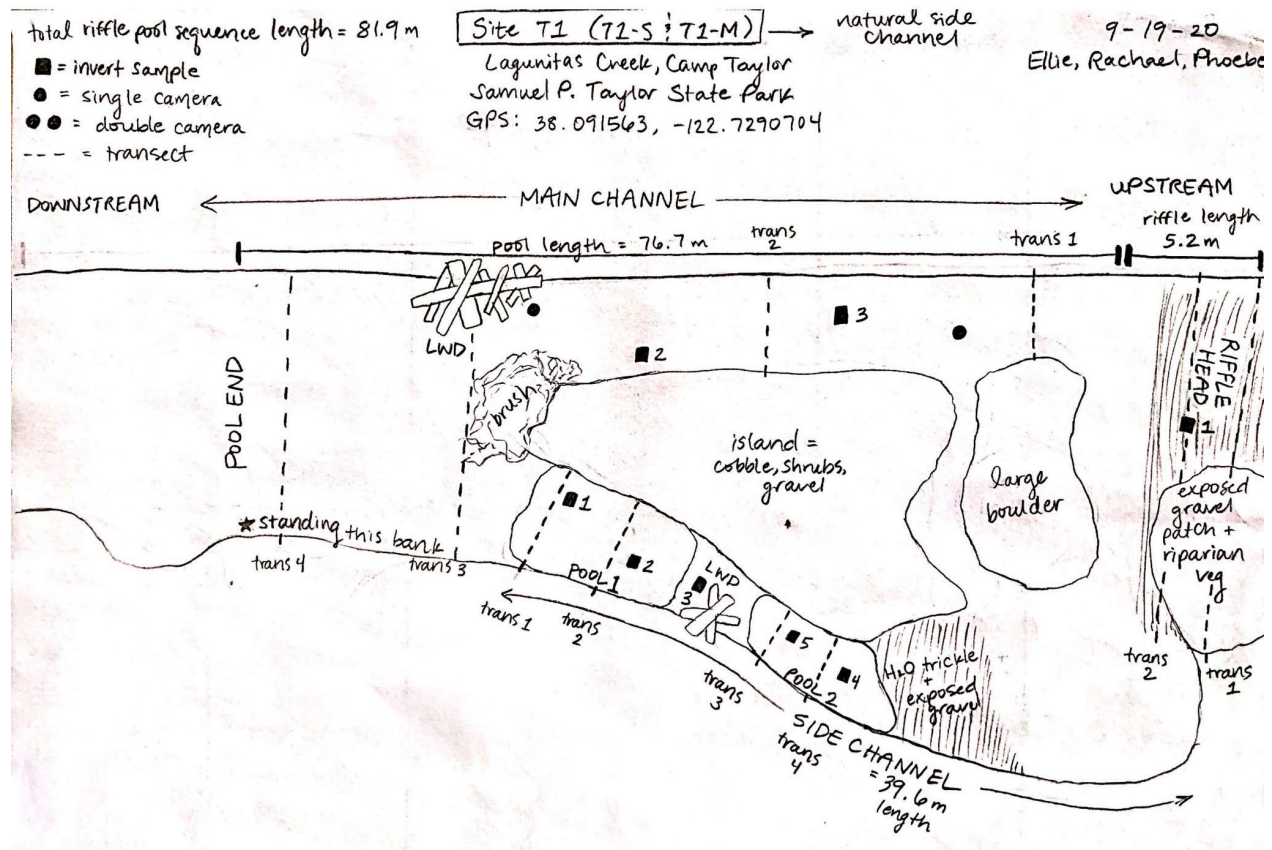 total riffle pool sequence length = 81.9 m
■ = invert sample
● = single camera
●● = double camera
---- = transect
Site T1 (T1-S & T1-M) → natural side
channel
Lagunitas Creek, Camp Taylor
Samuel P. Taylor State Park
GPS: 38.091563, -122.7290704
9-19-20
Ellie, Rachael, Phoebe
DOWNSTREAM
MAIN CHANNEL
UPSTREAM
riffle length
5.2 m
pool length = 76.7 m
trans
2
trans 1
3
2
LWD
POOL END
brush
RIFFLE
HEAD
1
island =
cobble, shrubs,
gravel
large
boulder
exposed
gravel
patch +
riparian
veg
★ standing this bank
trans 4
trans 3
1
2
POOL 1
LWD
3
trans 1
trans
2
5
4
POOL 2
H2O trickle
+
exposed
gravel
trans
3
trans
4
trans
2
trans
1
SIDE CHANNEL
= 39.6m
length